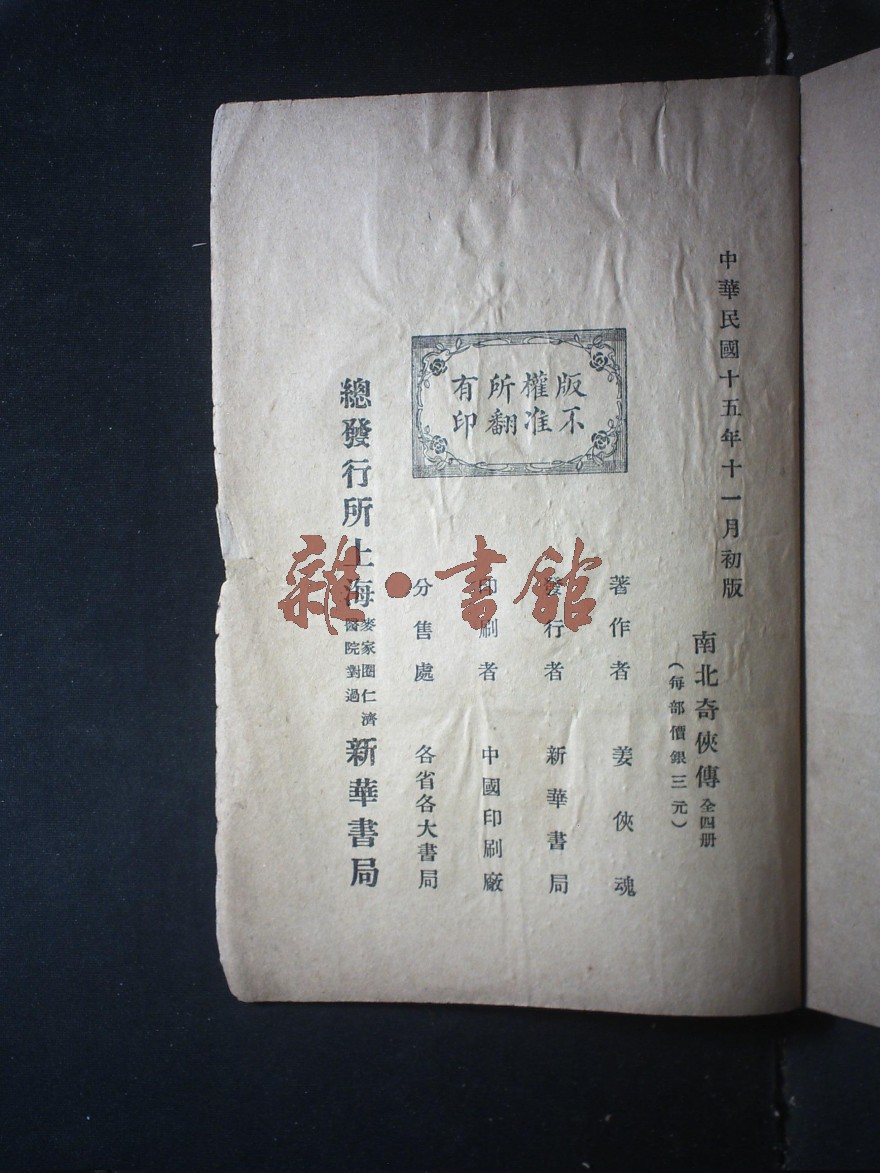 中華民國十五年十一月初版
南北奇俠傳全四册
（每部價銀三元）
版權所有
不准翻印
著作者 姜俠魂
發行者 新華書局
印刷者 中國印刷廠
分售處 各省各大書局
總發行所上海麥家圈仁濟醫院對過新華書局
雜·書館